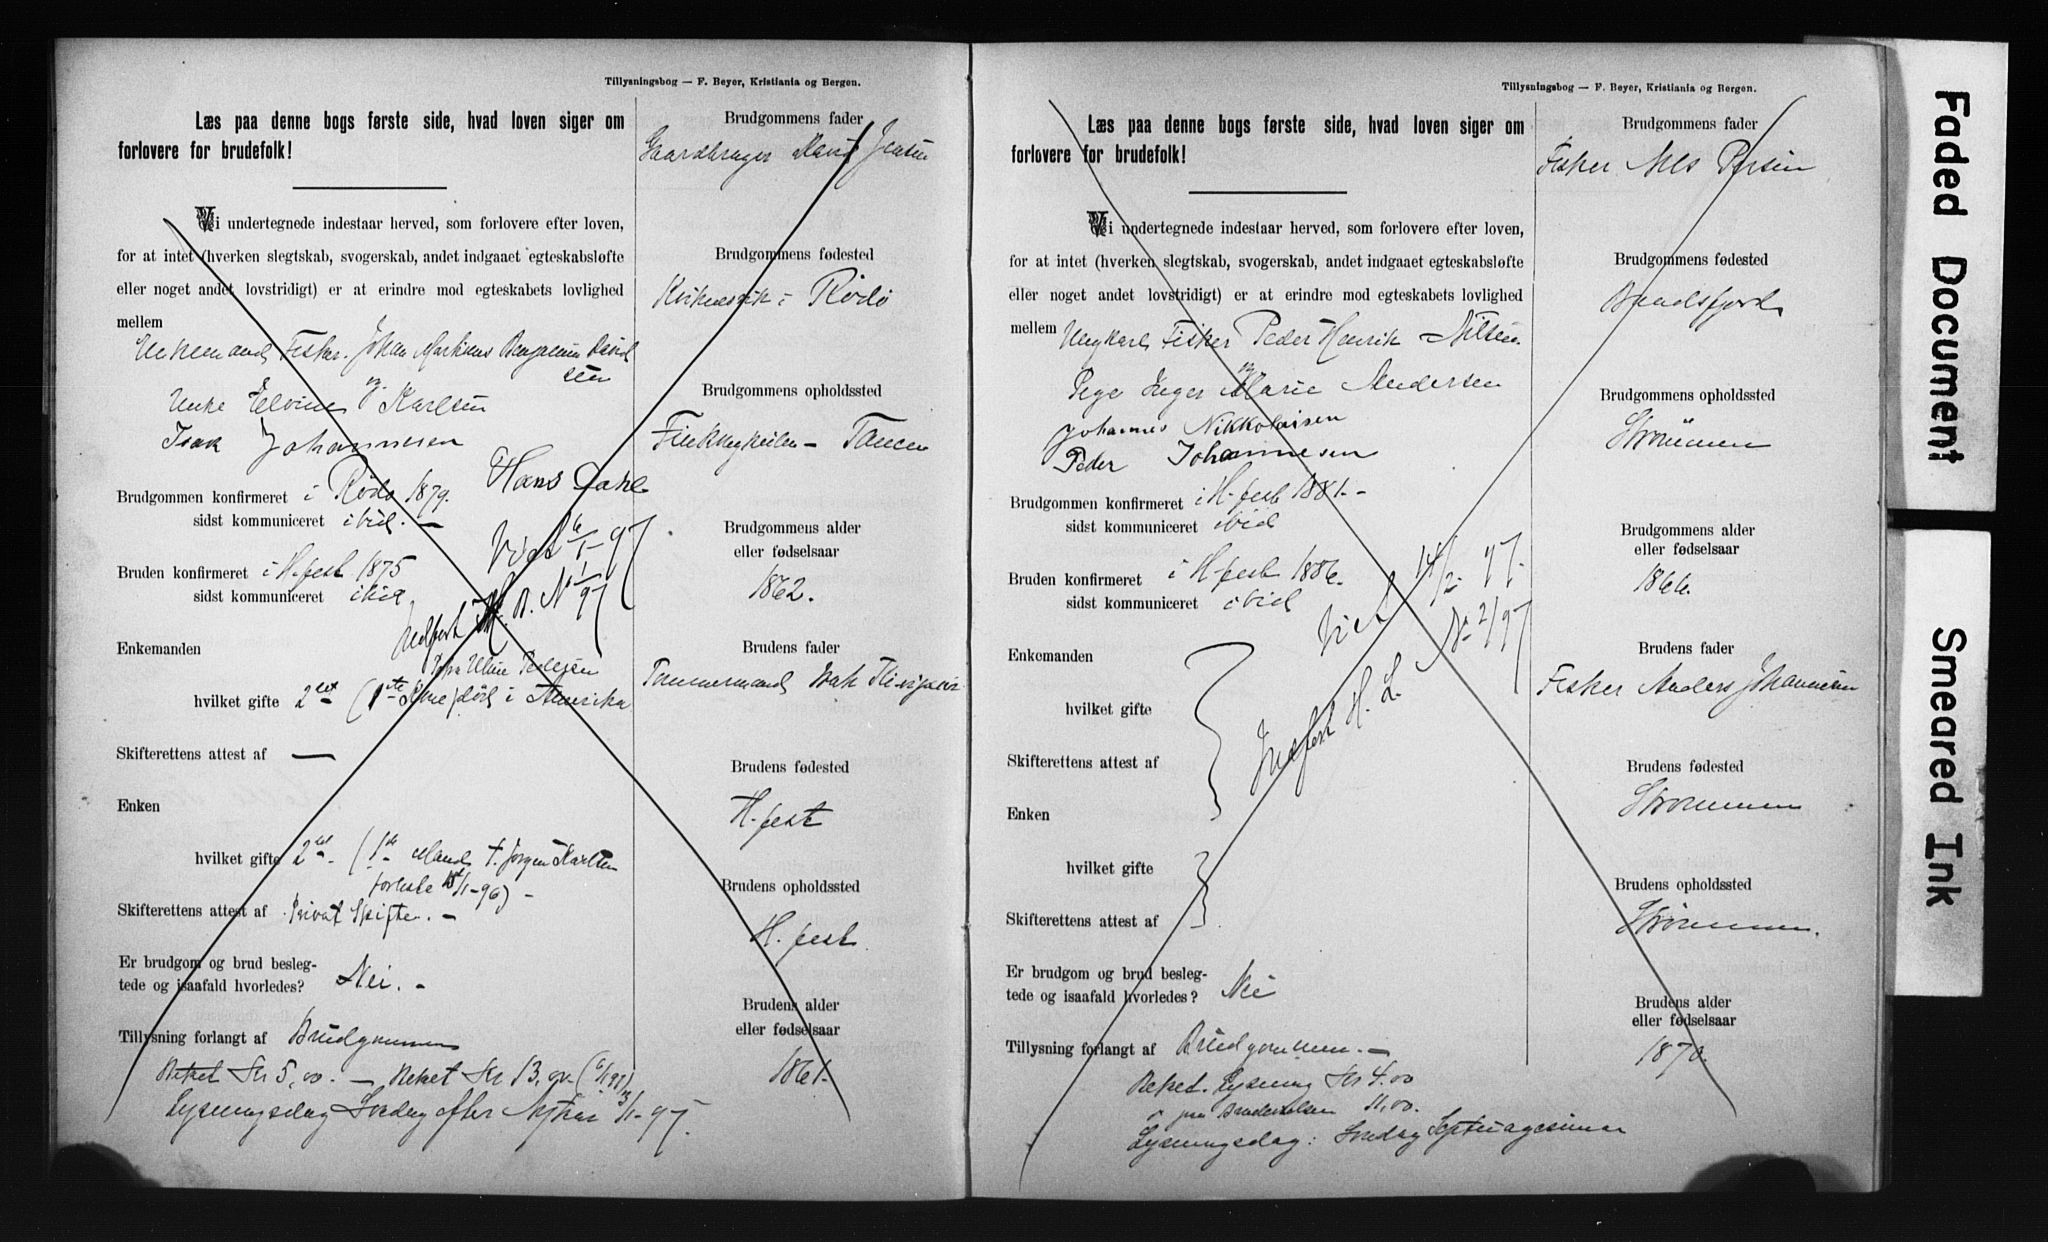 Tillysningsbog — F. Beyer, Kristiania og Bergen.
Læs paa denne bogs første side, hvad loven siger om
forlovere for brudefolk!
Vi undertegnede indestaar herved, som forlovere efter loven,
for at intet (hverken slegtskab, svogerskab, andet indgaaet egteskabsløfte
eller noget andet lovstridigt) er at erindre mod egteskabets lovlighed
mellem
Enkemand Fisker Johan Martinus Benjamin David
sen
og
Enke Elvine Karlsen
Isak Johannesen
Hans Dahl
Brudgommen konfirmeret i Rødø 1879.
sidst kommuniceret ibid. —
Viet 6/1-97
Bruden konfirmeret i H-fest 1875
sidst kommuniceret ibid.
Indført N 1/97
Enkemanden
hvilket gifte 2det (1ste død i Amerika
Skifterettens attest af —
Enken
hvilket gifte 2det (1ste Mand † Jørgen Karlsen
forliste 15/1-96) -
Skifterettens attest af Privat Skifte. -
Er brudgom og brud besleg-
tede og isaafald hvorledes? Nei. -
Tillysning forlangt af Brudgommen
Betalt Kr 5,00. — Betalt Kr 13,00. (6/1 97)
Lysningsdag Søndag efter Nytaar 3/1-97
Brudgommens fader
Gaardbruger David Jensen
Brudgommens fødested
i Rødø
Brudgommens opholdssted
Finkkeilen - Tanen
Brudgommens alder
eller fødselsaar
1862.
Brudens fader
Tømmermand Isak
Brudens fødested
H-fest
Brudens opholdssted
H. fest
Brudens alder
eller fødselsaar
1861.
Tillysningsbog — F. Beyer, Kristiania og Bergen.
Læs paa denne bogs første side, hvad loven siger om
forlovere for brudefolk!
Vi undertegnede indestaar herved, som forlovere efter loven,
for at intet (hverken slegtskab, svogerskab, andet indgaaet egteskabsløfte
eller noget andet lovstridigt) er at erindre mod egteskabets lovlighed
mellem
Ungkarl Fisker Peder Henrik Nilsen
og
Pige Inger Marie Andersen
Johannes Nikkolaisen
Peder Johannesen
Brudgommen konfirmeret i H-fest 1881. -
sidst kommuniceret ibid
Bruden konfirmeret i H-fest 1886.
sidst kommuniceret ibid
Viet 14/2- 97.
Indført H. L. N 2/97
Enkemanden
hvilket gifte
Skifterettens attest af
Enken
hvilket gifte
Skifterettens attest af
Er brudgom og brud besleg-
tede og isaafald hvorledes? Nei
Tillysning forlangt af Brudgommen. -
Betalt. Lysning Kr 4.00
11,00.
Lysningsdag: Søndag Septuagesima
Brudgommens fader
Fisker Nils Persen
Brudgommens fødested
Brudgommens opholdssted
Strømmen
Brudgommens alder
eller fødselsaar
1866.
Brudens fader
Fisker Anders Johannesen
Brudens fødested
Strømmen
Brudens opholdssted
Strømmen.
Brudens alder
eller fødselsaar
1870.
Faded Document
Smeared Ink